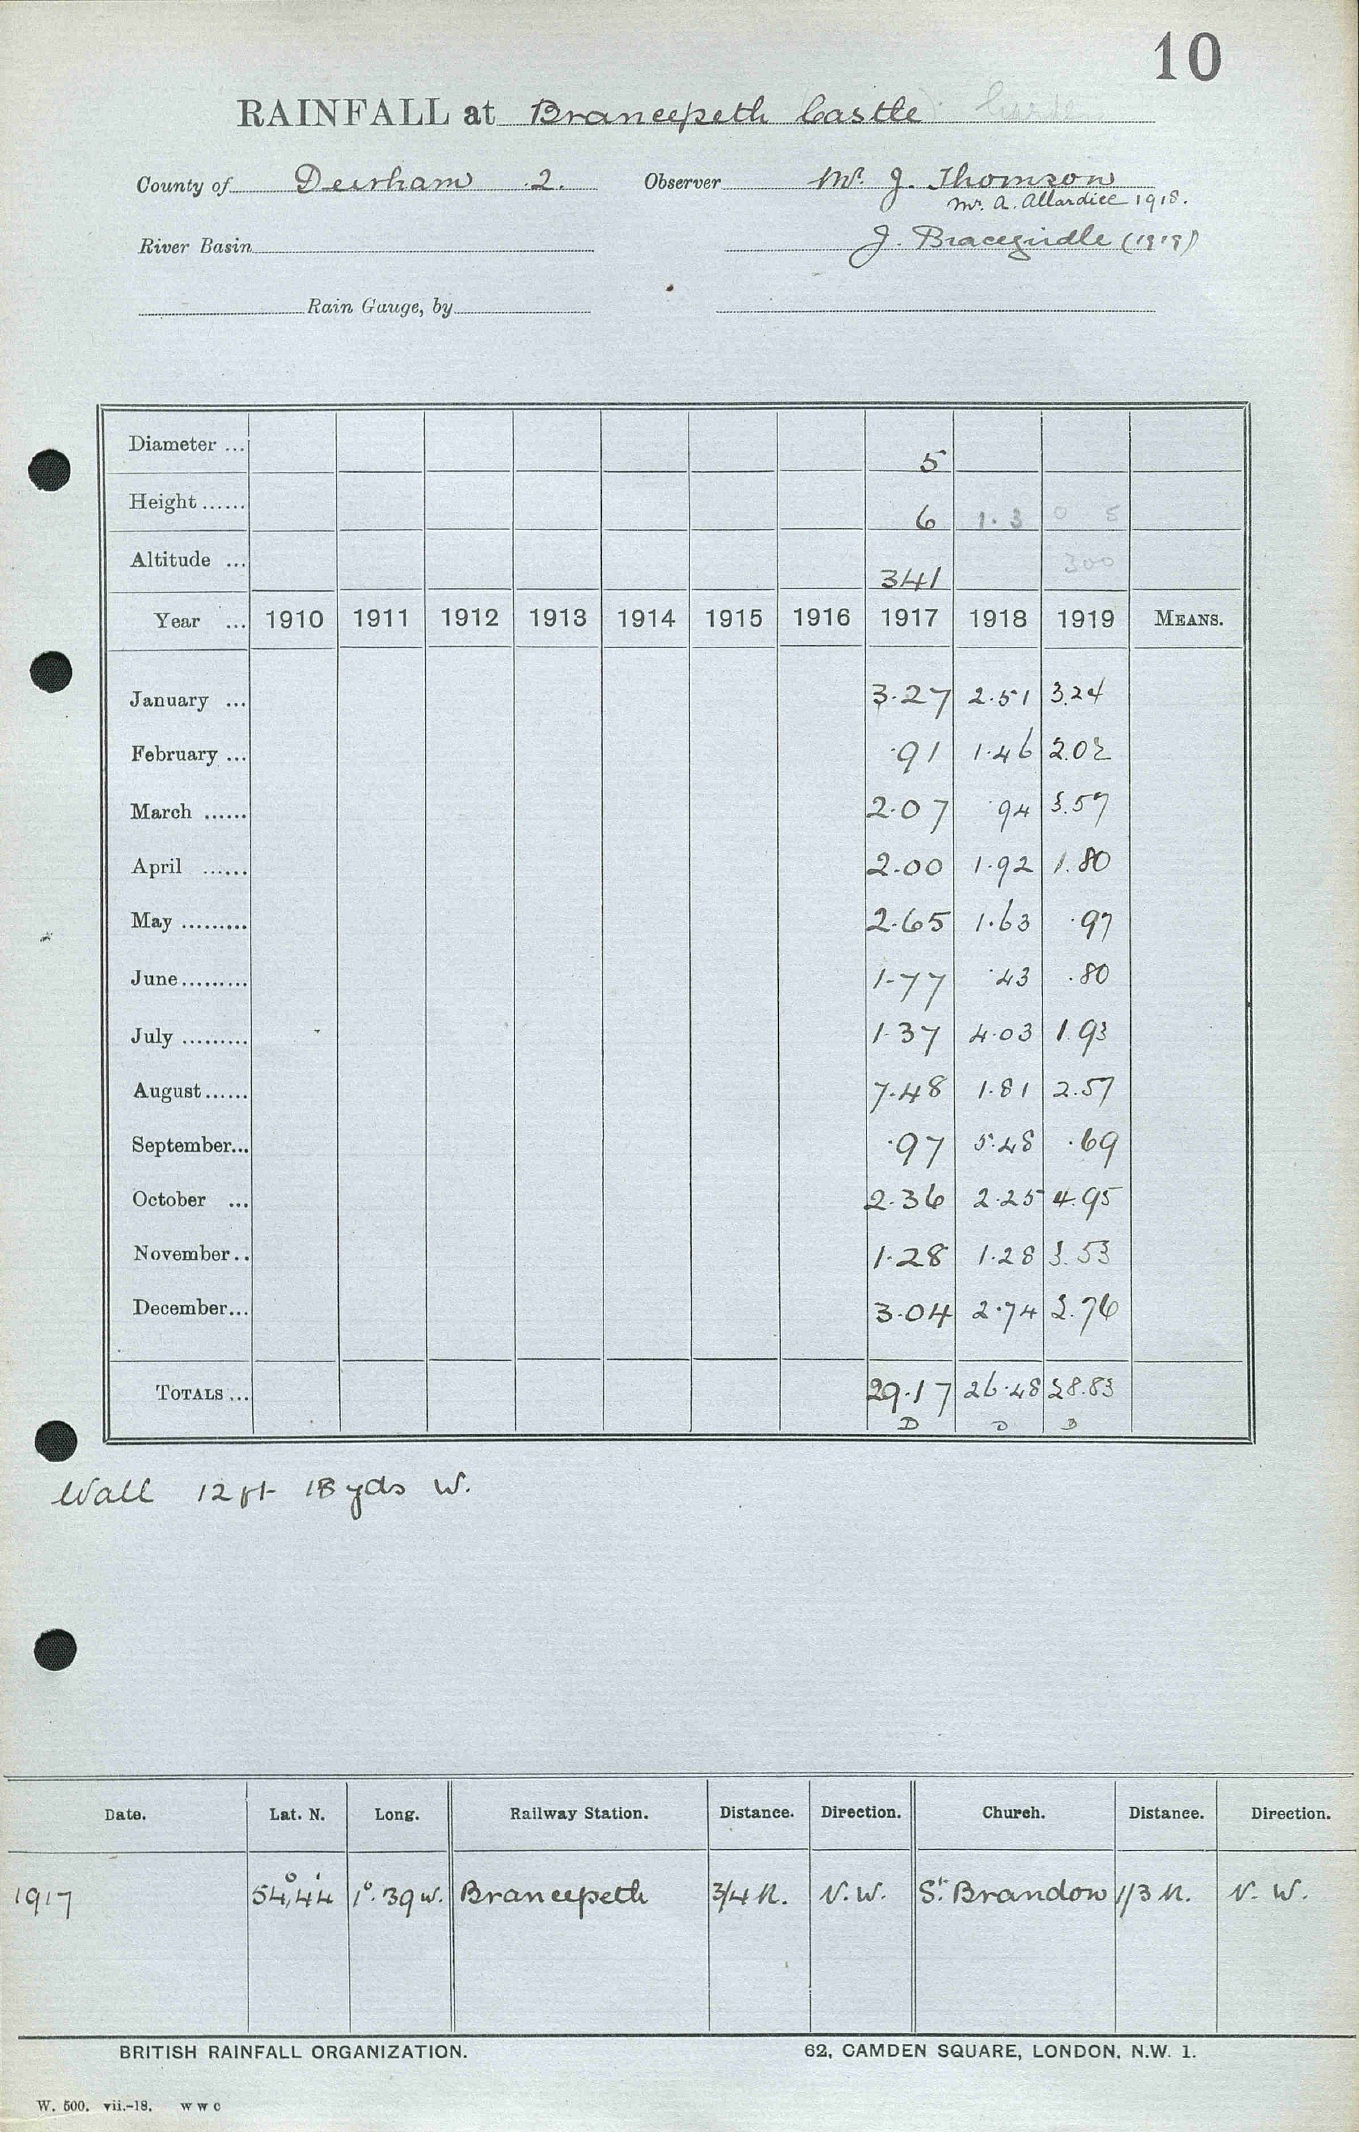 10
RAINFALL at Brancepeth Castle
County of Durham 2. Observer Mr. J. Thomson
Mr. A. Allardice 1918.
River Basin J. Bracegirdle (1919)
Rain Gauge, by
Diameter ... 5
Height ...... 6 1.3 0 5
Altitude ... 341 300
Year ... 1910 1911 1912 1913 1914 1915 1916 1917 1918 1919 MEANS.
January ... 3.27 2.51 3.24
February ... .91 1.46 2.02
March ...... 2.07 .94 3.57
April ...... 2.00 1.92 1.80
May ......... 2.65 1.63 .97
June ......... 1.77 .43 .80
July ......... 1.37 4.03 1.93
August ...... 7.48 1.81 2.57
September... .97 5.48 .69
October ... 2.36 2.25 4.95
November.. 1.28 1.28 3.53
December... 3.04 2.74 2.76
TOTALS ... 29.17 26.48 28.83
D D D
Wall 12 ft 18 yds W.
Date. Lat. N. Long. Railway Station. Distance. Direction. Church. Distance. Direction.
1917 54°.44' 1°.39 W. Brancepeth 3/4 M. N.W. St. Brandon 1/3 M. N. W.
BRITISH RAINFALL ORGANIZATION. 62, CAMDEN SQUARE, LONDON, N.W. 1.
W. 500. vii.-18. W W C